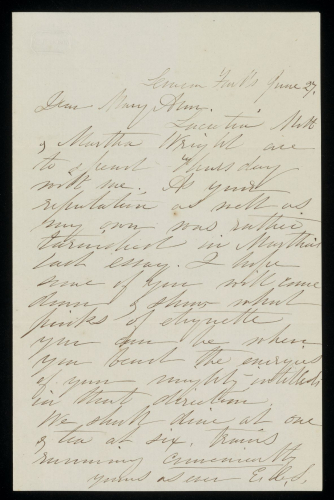 Seneca Falls June 27.
Dear Mary Ann.
Lucretia Mott
& Martha Wright are
to spend Thursday
with me. As your
reputation as well as
my own was rather
tarnished in Martha's
last essay. I hope
some of you will come
down & show what
pinks of etiquette
you can be when
you bend the energies
of your mighty intellects
in that direction.
We shall dine at one
& tea at six. trains
running conveniently
yours as ever E.C.S.